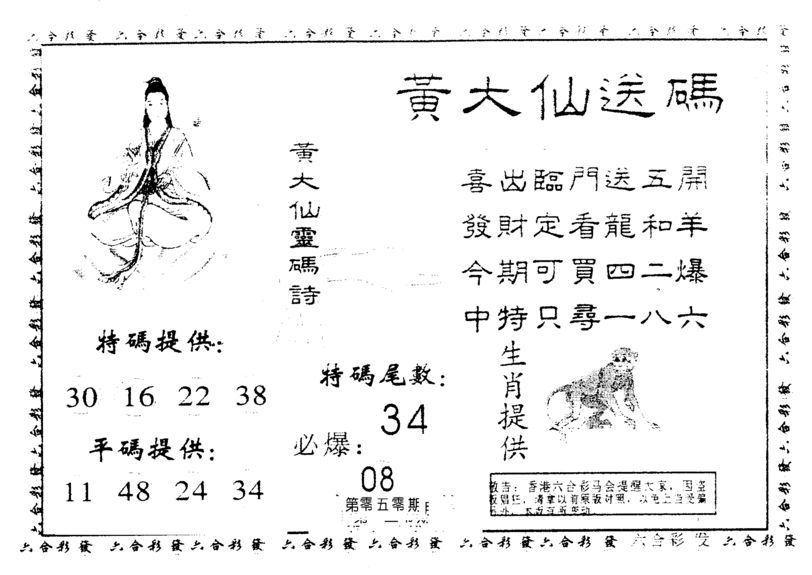 六合彩發 六合彩發 六合彩發 六合彩發 六合彩發 六合彩發 六合彩發 六合彩發
黃大仙送碼
黃大仙靈碼詩
喜出臨門送五開
發財定看龍和羊
今期可買四二爆
中特只尋一八六
特碼提供：
30 16 22 38
平碼提供：
11 48 24 34
特碼尾數：
34
必爆：
08
第零五零期
生肖提供
敬告：香港六合彩马会提醒大家，因盗
版猖狂，请拿以前原版对照，以免上当受骗
六合彩發 六合彩發 六合彩發 六合彩發 六合彩發 六合彩發 六合彩發 六合彩发